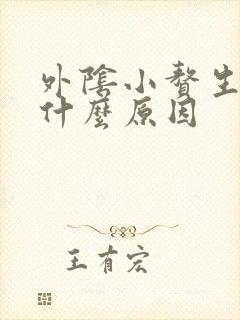 外陰小贅生
什麼原因
王有宏